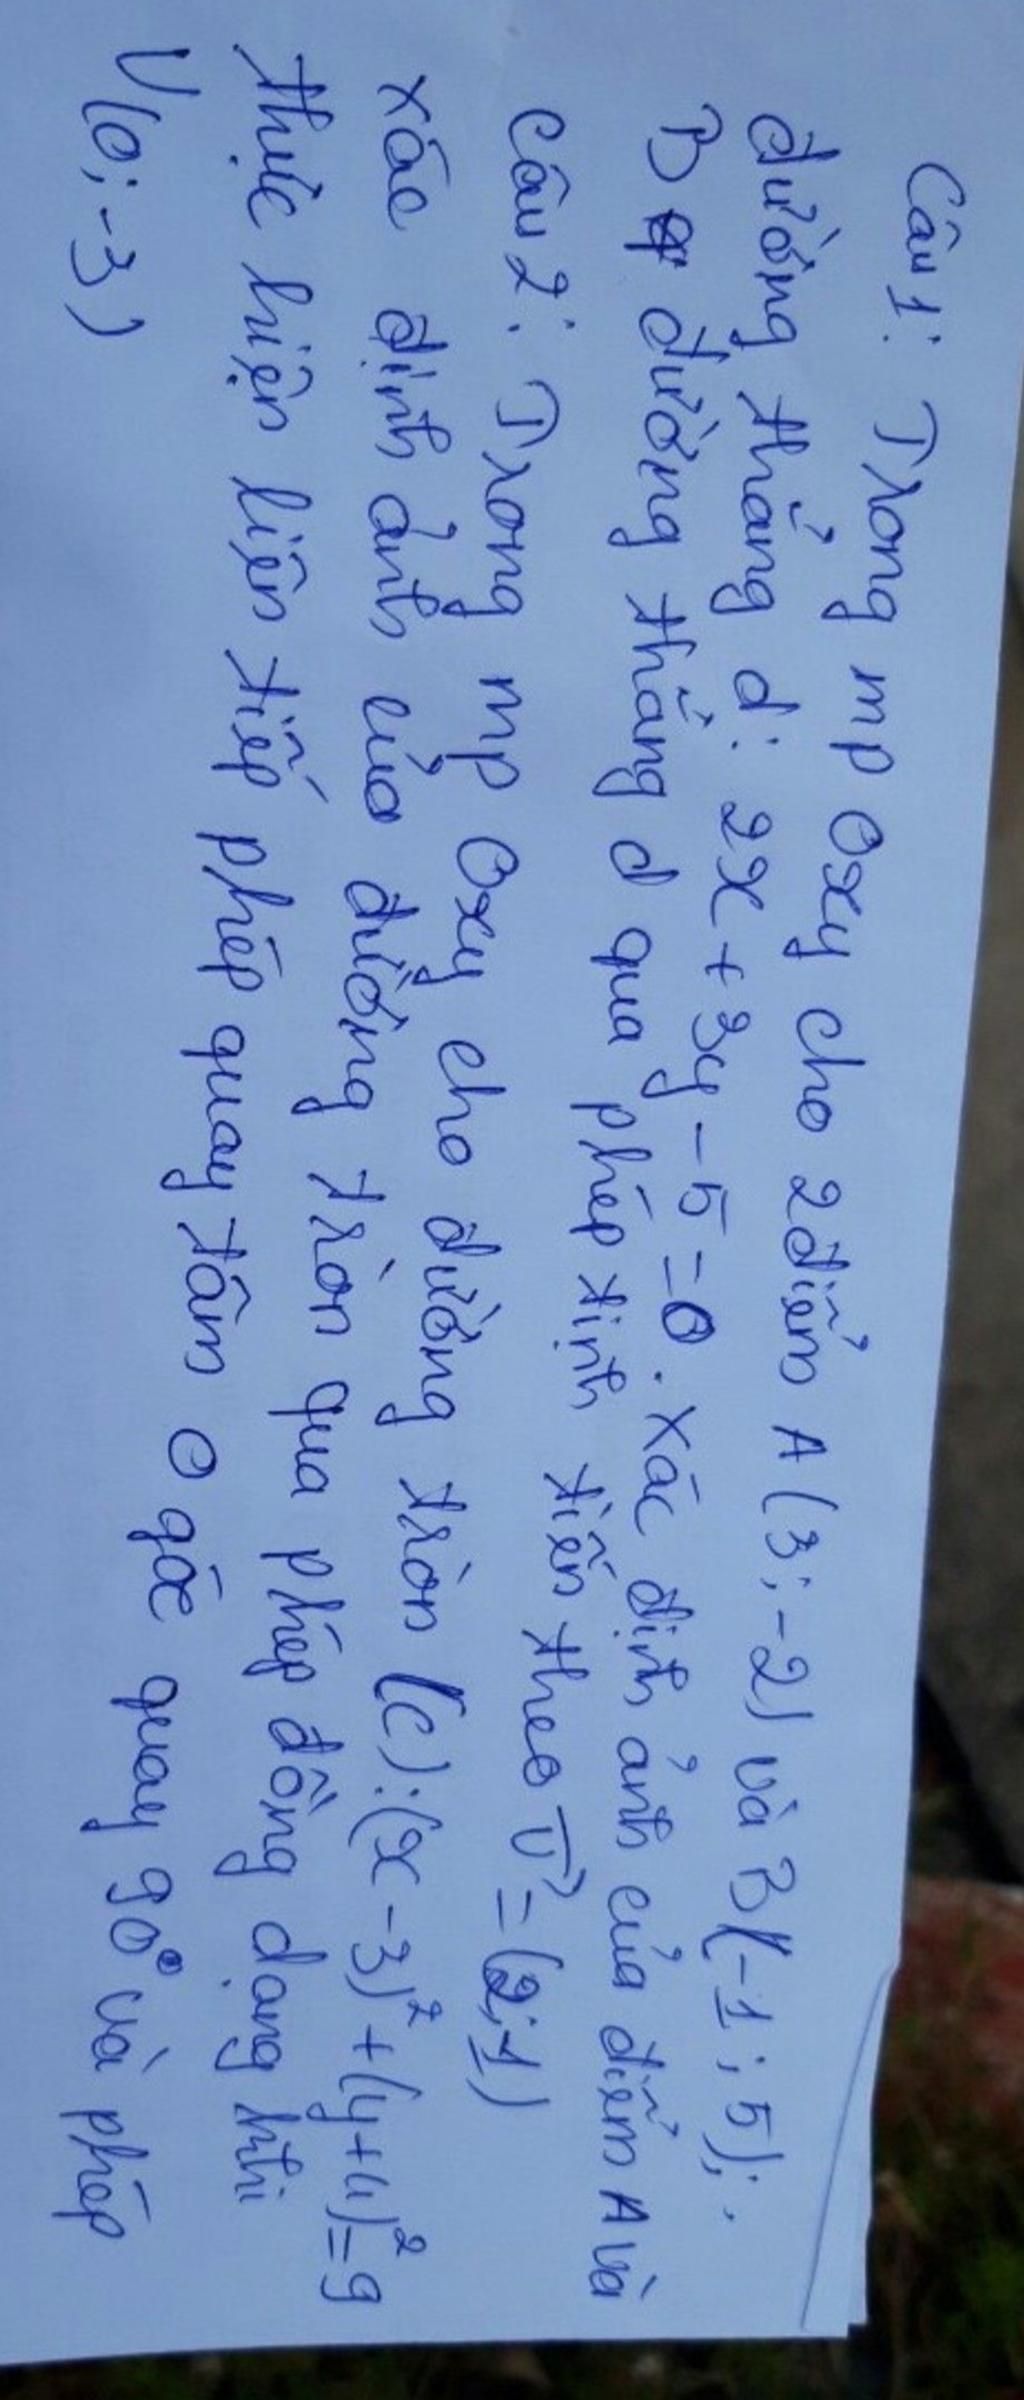 Câu 1: Trong mp Oxy cho 2 điểm A (3; -2) và B(-1; 5);
đường thẳng d: 2x + 3y - 5 = 0. Xác định ảnh của điểm A và
B đường thẳng d qua phép tịnh tiến theo v⃗ = (2; 1)
Câu 2: Trong mp Oxy cho đường tròn (C): (x - 3)² + (y + 4)² = 9
xác định ảnh của đường tròn qua phép đồng dạng khi
thực hiện liên tiếp phép quay tâm O góc quay 90° và phép
V(O; -3)